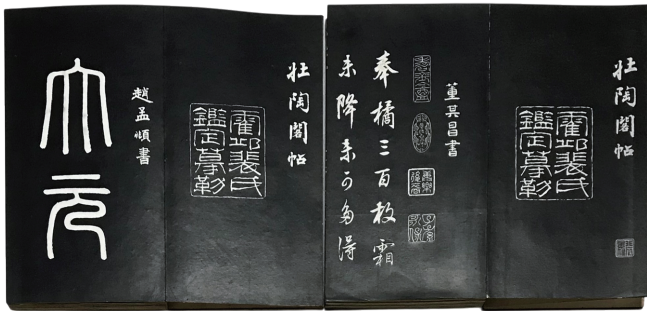 壯陶閣帖
霍邱裴氏
鑑定摹勒
董其昌書
奉橘三百枚霜
未降未可多得
壯陶閣帖
霍邱裴氏
鑑定摹勒
趙孟頫書
大元